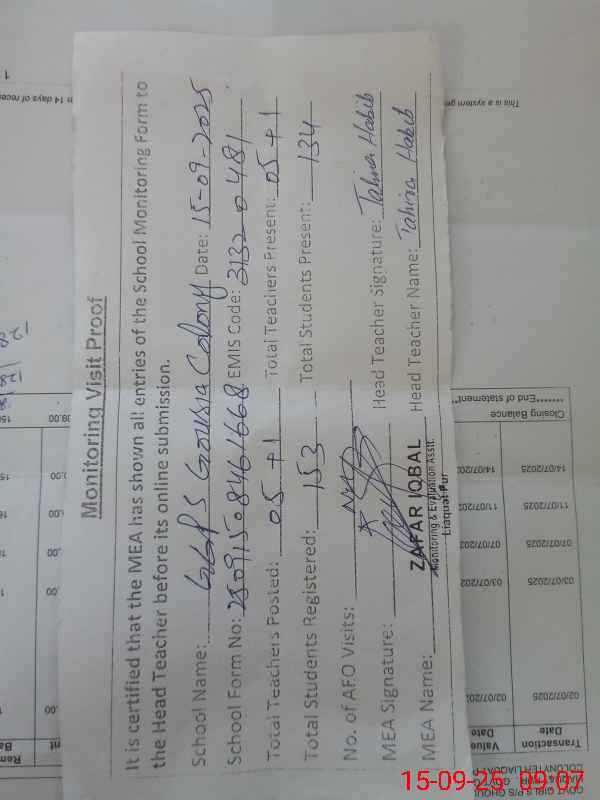 Monitoring Visit Proof
It is certified that the MEA has shown all entries of the School Monitoring Form to
the Head Teacher before its online submission.
School Name: GGPS Gousia Colony Date: 15-09-2025
School Form No: 25091508461668 EMIS Code: 31320481
Total Teachers Posted: 05+1 Total Teachers Present: 05+1
Total Students Registered: 153 Total Students Present: 134
No. of AFO Visits:
MEA Signature: Head Teacher Signature: Tahira Habib
MEA Name: ZAFAR IQBAL Head Teacher Name: Tahira Habib
Monitoring & Evaluation Asstt.
Liaquat Pur
This is a system ge
n 14 days of rece
1
128
Closing Balance
*****End of statement*
14/07/2025
11/07/2025
07/07/2025
03/07/2025
02/07/2025
Transaction
Date
Value
Date
GOVT GIRLS P/S GHOU
15-09-25 09:07